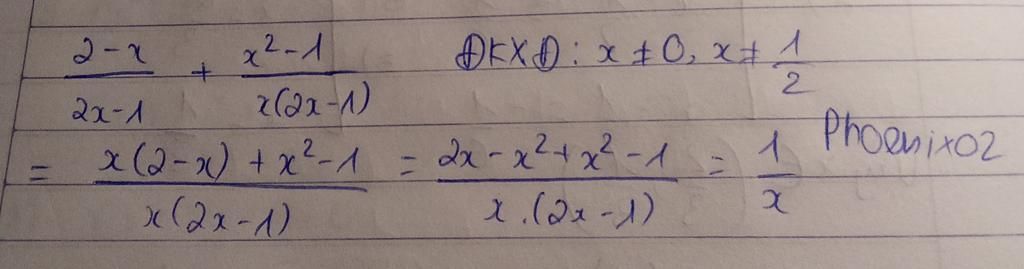 (2-x)/(2x-1) + (x²-1)/(x(2x-1)) ĐKXĐ: x ≠ 0, x ≠ 1/2
= (x(2-x) + x²-1)/(x(2x-1)) = (2x - x² + x² - 1)/(x.(2x-1)) = 1/x Phoenix02